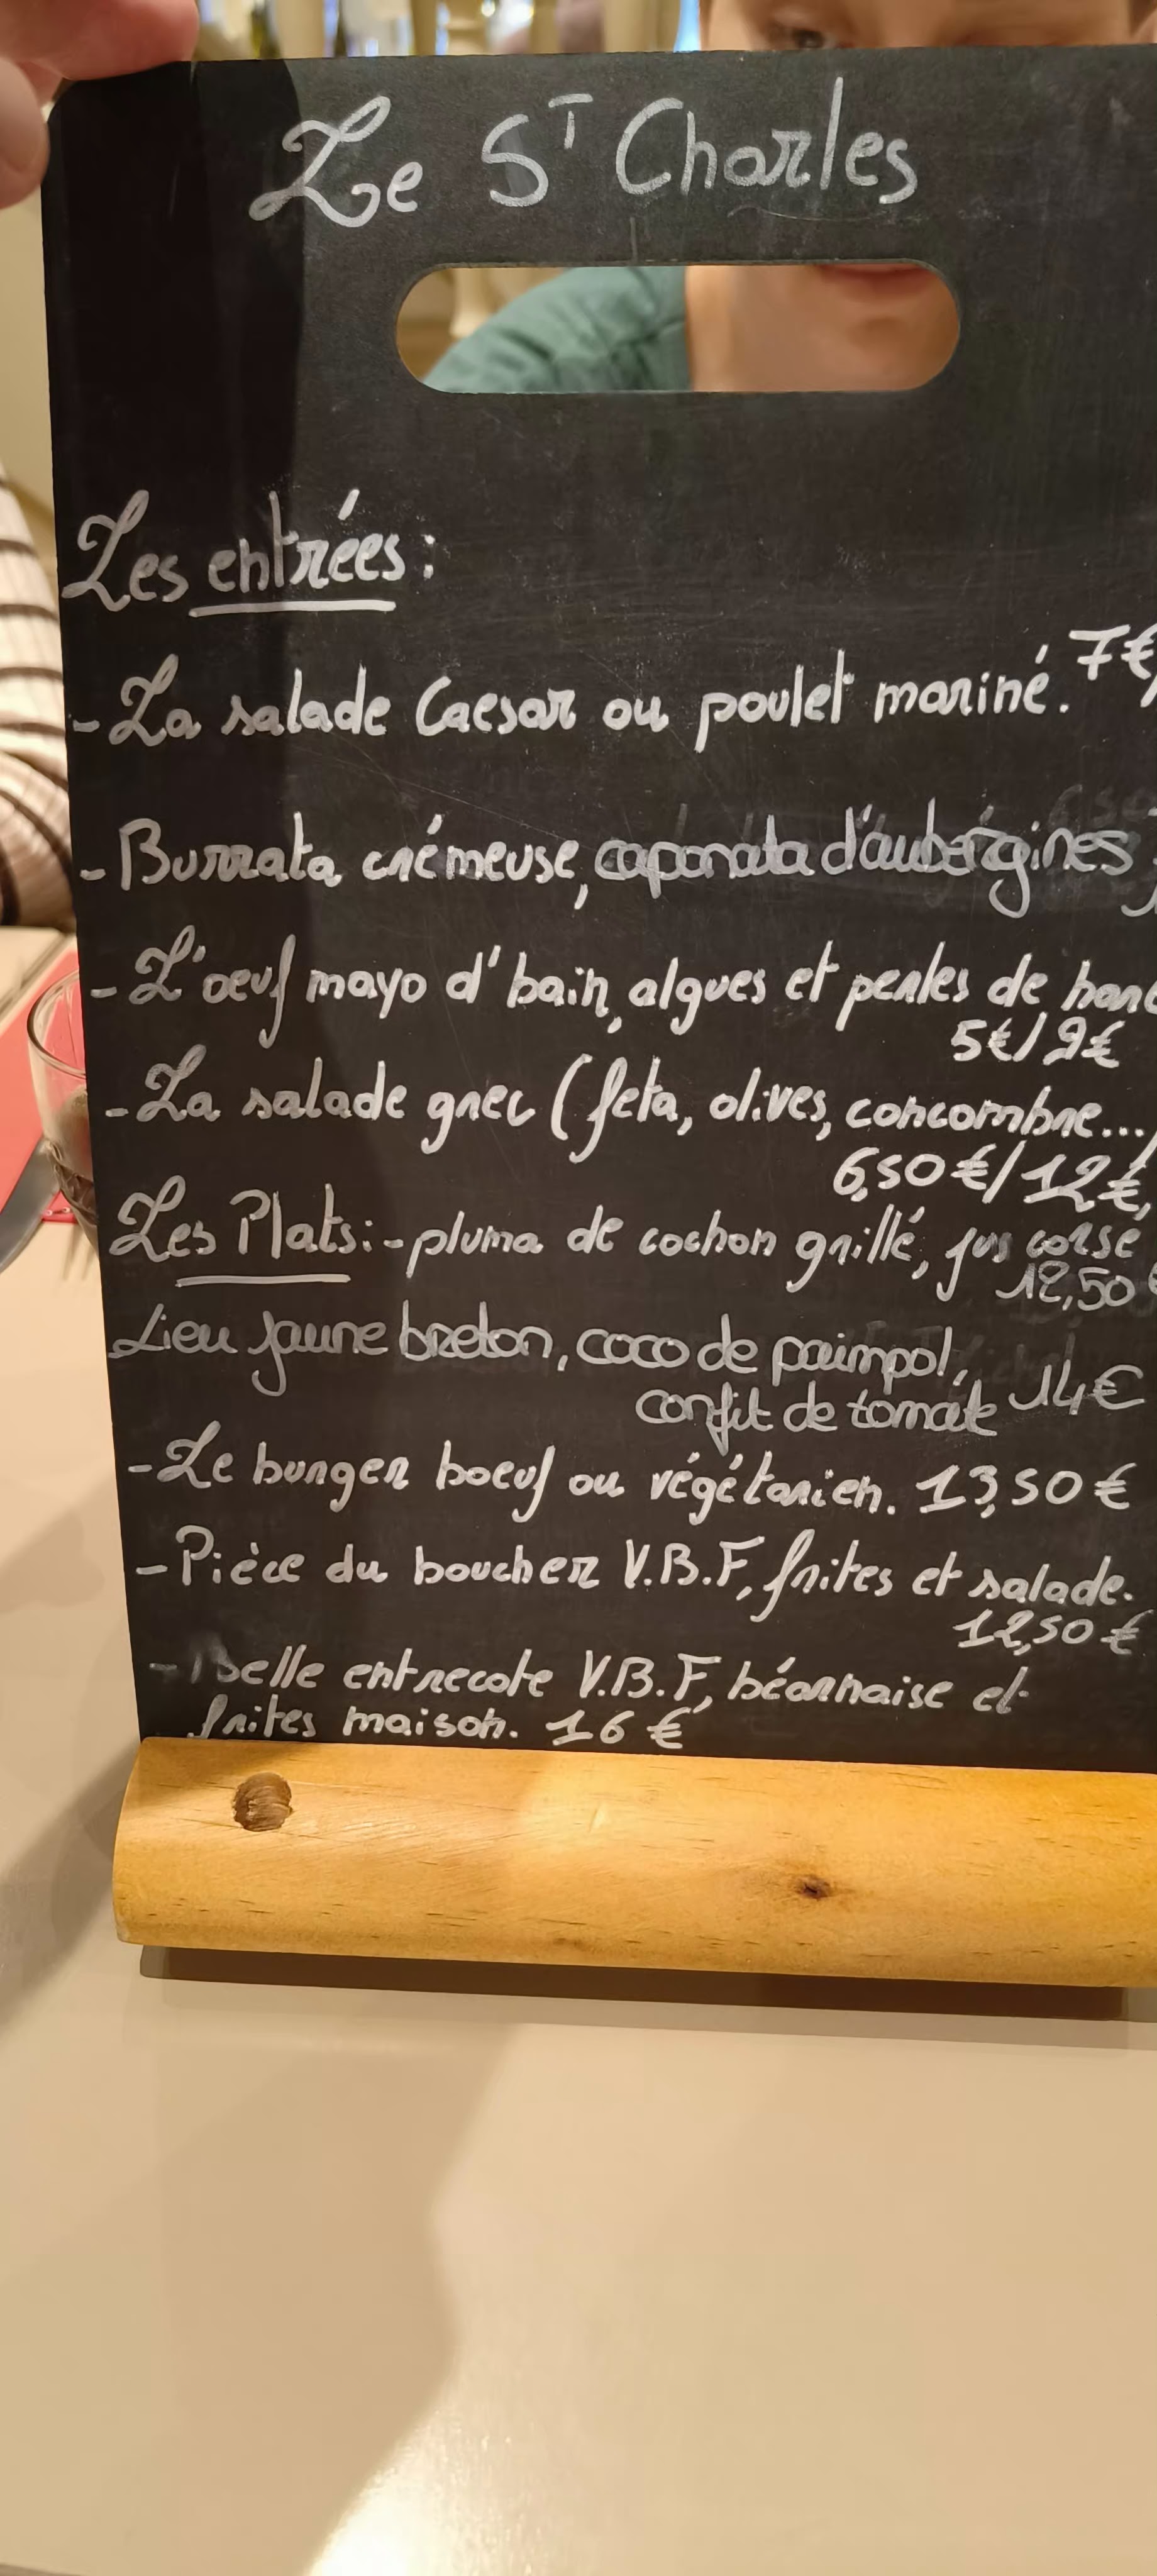 Le ST Charles
Les entrées:
- La salade Caesar ou poulet mariné. 7€/
- Burrata crémeuse, caponata d'aubergines
- L'oeuf mayo d'bain, algues et perles de
5€/9€
- La salade grec (feta, olives, concombre...)
6,50€/12€
Les Plats: - pluma de cochon grillé, jus corsé
12,50€
Lieu jaune breton, coco de paimpol,
confit de tomate 14€
- Le burger boeuf ou végétarien. 13,50€
- Pièce du boucher V.B.F, frites et salade.
12,50€
- Belle entrecote V.B.F, béarnaise et
frites maison. 16€